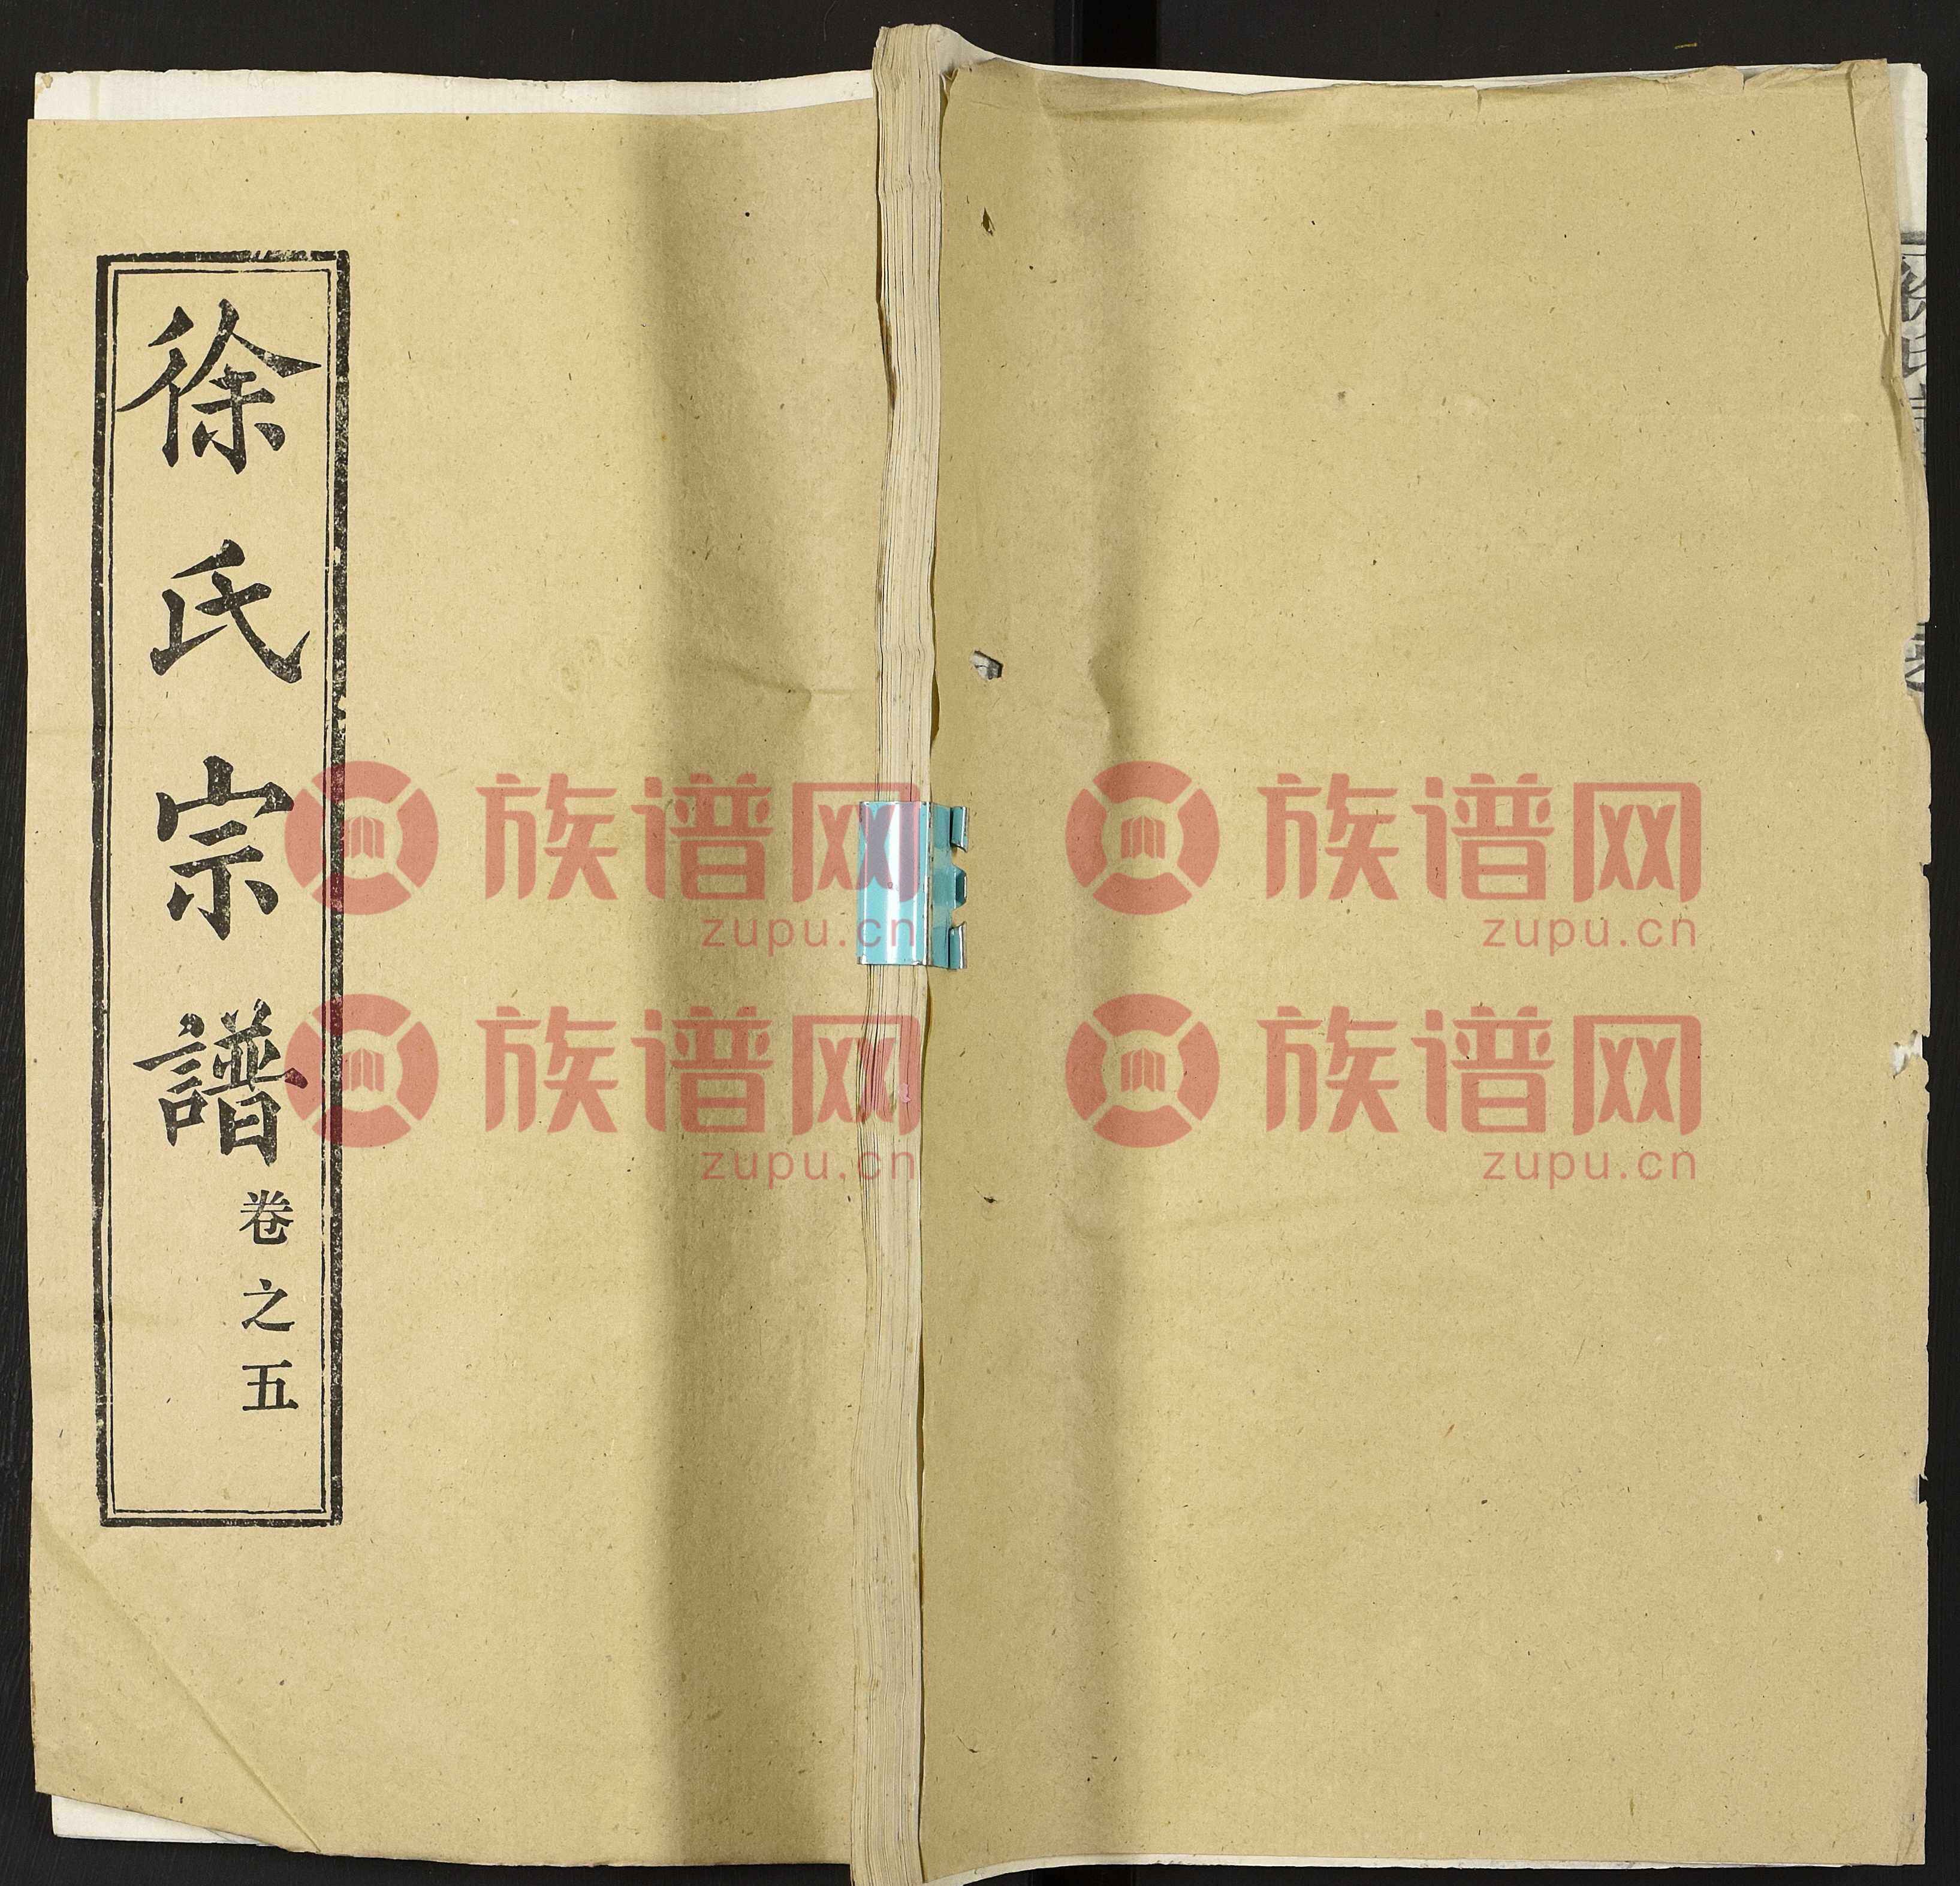 徐氏宗譜
卷之五
族谱网
zupu.cn
族谱网
zupu.cn
族谱网
zupu.cn
族谱网
zupu.cn